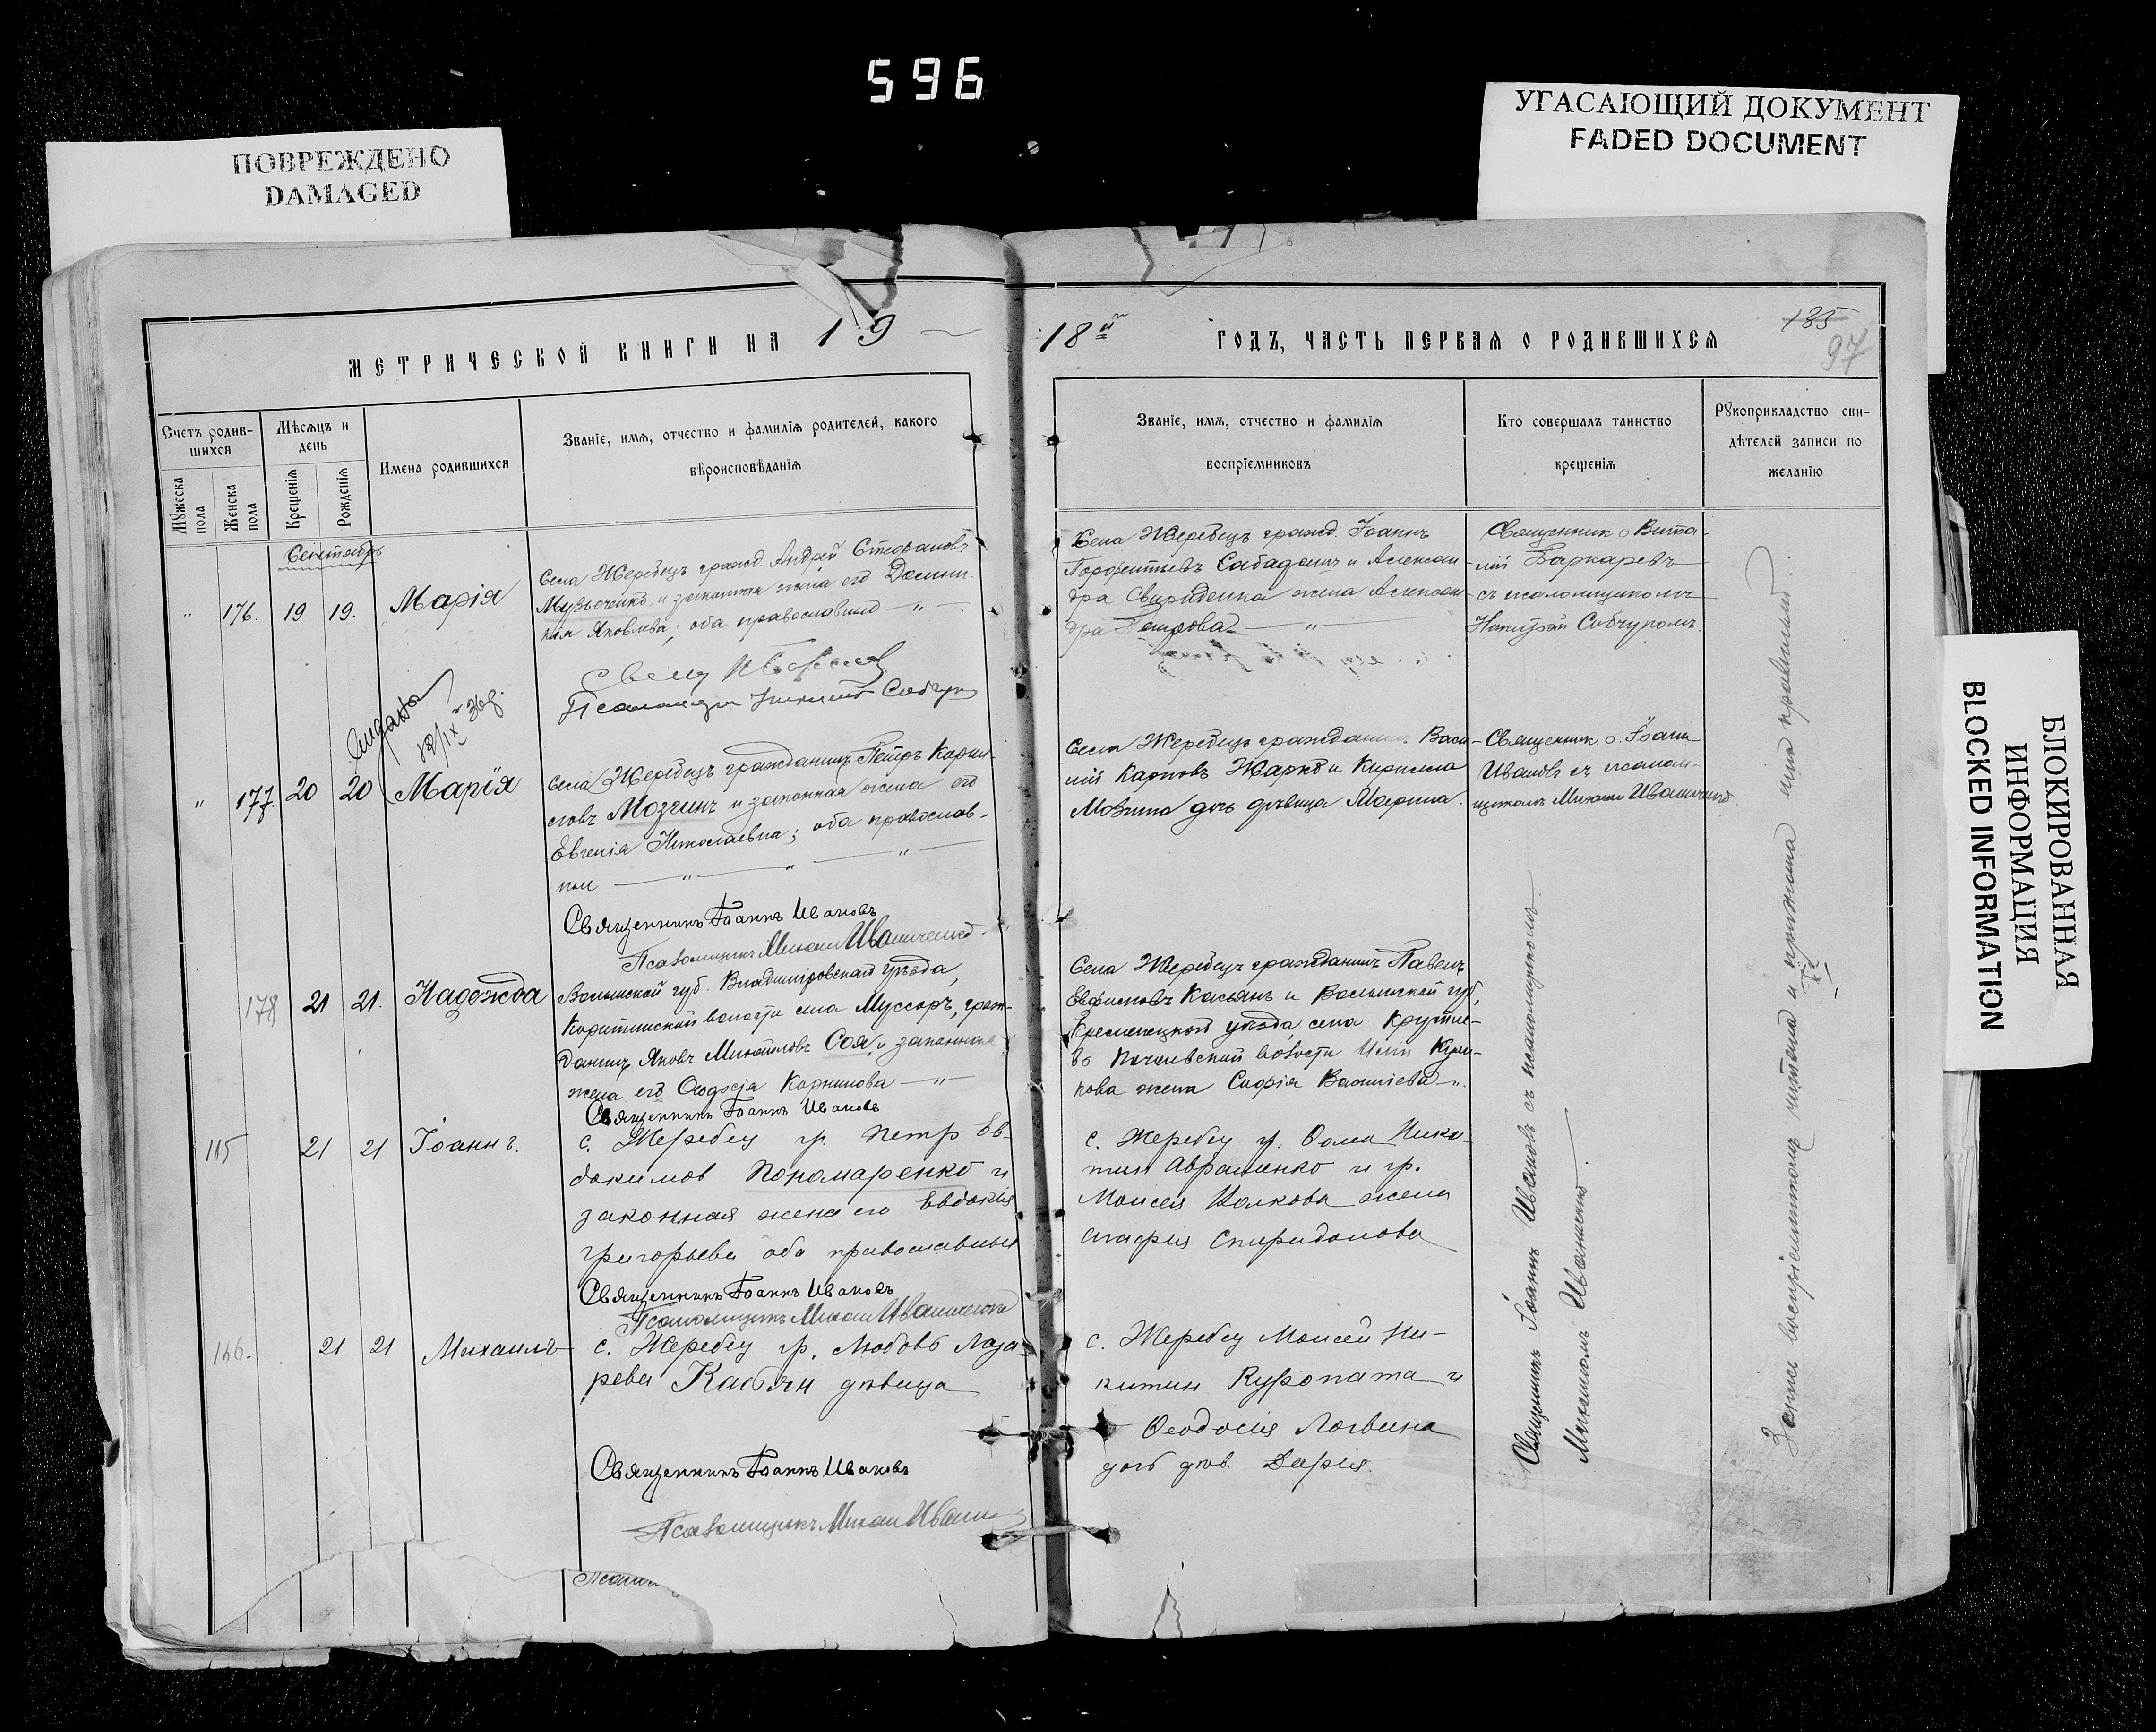 596
ПОВРЕЖДЕНО
DAMAGED
УГАСАЮЩИЙ ДОКУМЕНТ
FADED DOCUMENT
БЛОКИРОВАННАЯ
ИНФОРМАЦИЯ
BLOCKED INFORMATION
МЕТРИЧЕСКОЙ КНИГИ НА 19
18й ГОДЪ, ЧАСТЬ ПЕРВАЯ О РОДИВШИХСЯ
185
97
Счетъ родив-
шихся
Мужеска
пола
Женска
пола
Мѣсяцъ и
день
Крещенія
Рожденія
Имена родившихся
Званіе, имя, отчество и фамилія родителей, какого
вѣроисповѣданія
Званіе, имя, отчество и фамилія
воспріемниковъ
Кто совершалъ таинство
крещенія
Рукоприкладство сви-
дѣтелей записи по
желанію
Сентябрь
" 176. 19 19. Марія
Села Жеребецъ гражд. Андрей Стефановъ
и законная жена его Домни-
кія Яковлева; оба православные — " —
Села Жеребецъ гражд. Іоаннъ
и Алексан-
дра Свириденка жена Алексан-
дра Петрова — " —
Священникъ о. Вита-
лій
съ псаломщикомъ
Собчукомъ
18/IX 36 г.
" 177. 20 20 Марія
Села Жеребецъ гражданинъ Петръ Карпи-
ловъ Мозгинъ и законная жена его
Евгенія Николаевна; оба православ-
ные — " — " — " —
Священникъ Іоаннъ Ивановъ
Псаломщикъ Михаил Иваниченко
Села Жеребецъ гражданинъ Васи-
лій Карповъ и Кирилла
Мозгина дочь дѣвица Марина.
Священник о. Іоанн
Ивановъ съ псалом-
щикомъ Михаил Иваниченко
178 21 21. Надежда
Волынской губ. Владимировскаго уѣзда,
волости села Муссоръ, граж-
данинъ Яковъ Михайловъ Соя и законная
жена его Ѳеодосія Корнилова — " —
Священникъ Іоаннъ Ивановъ
Села Жеребецъ гражданинъ Павелъ
Касьянъ и Волынской губ.
Кременецкаго уѣзда села
волости
жена Софія Васильева ".
115 21 21 Іоаннъ.
с. Жеребец гр. Петр Ев-
докимов Пономаренко и
законная жена его Евдокия
Григорьева оба православные
Священникъ Іоаннъ Ивановъ
Псаломщикъ Михаил Иваниченко
с. Жеребец гр. Фома Ники-
тин Авраменко и гр.
Моисея Волкова жена
Агафия Спиридонова
116. 21 21 Михаилъ
с. Жеребец гр. Любовь Лаза-
рева Касьян дѣвица
Священникъ Іоаннъ Ивановъ
Псаломщикъ Михаил Ивани
с. Жеребец Моисей Ни-
китин Куропата и
Феодосия Логвина
дочь дѣв. Дария.
Священникъ Іоаннъ Ивановъ съ псаломщикомъ
Михаиломъ Иваниченко.